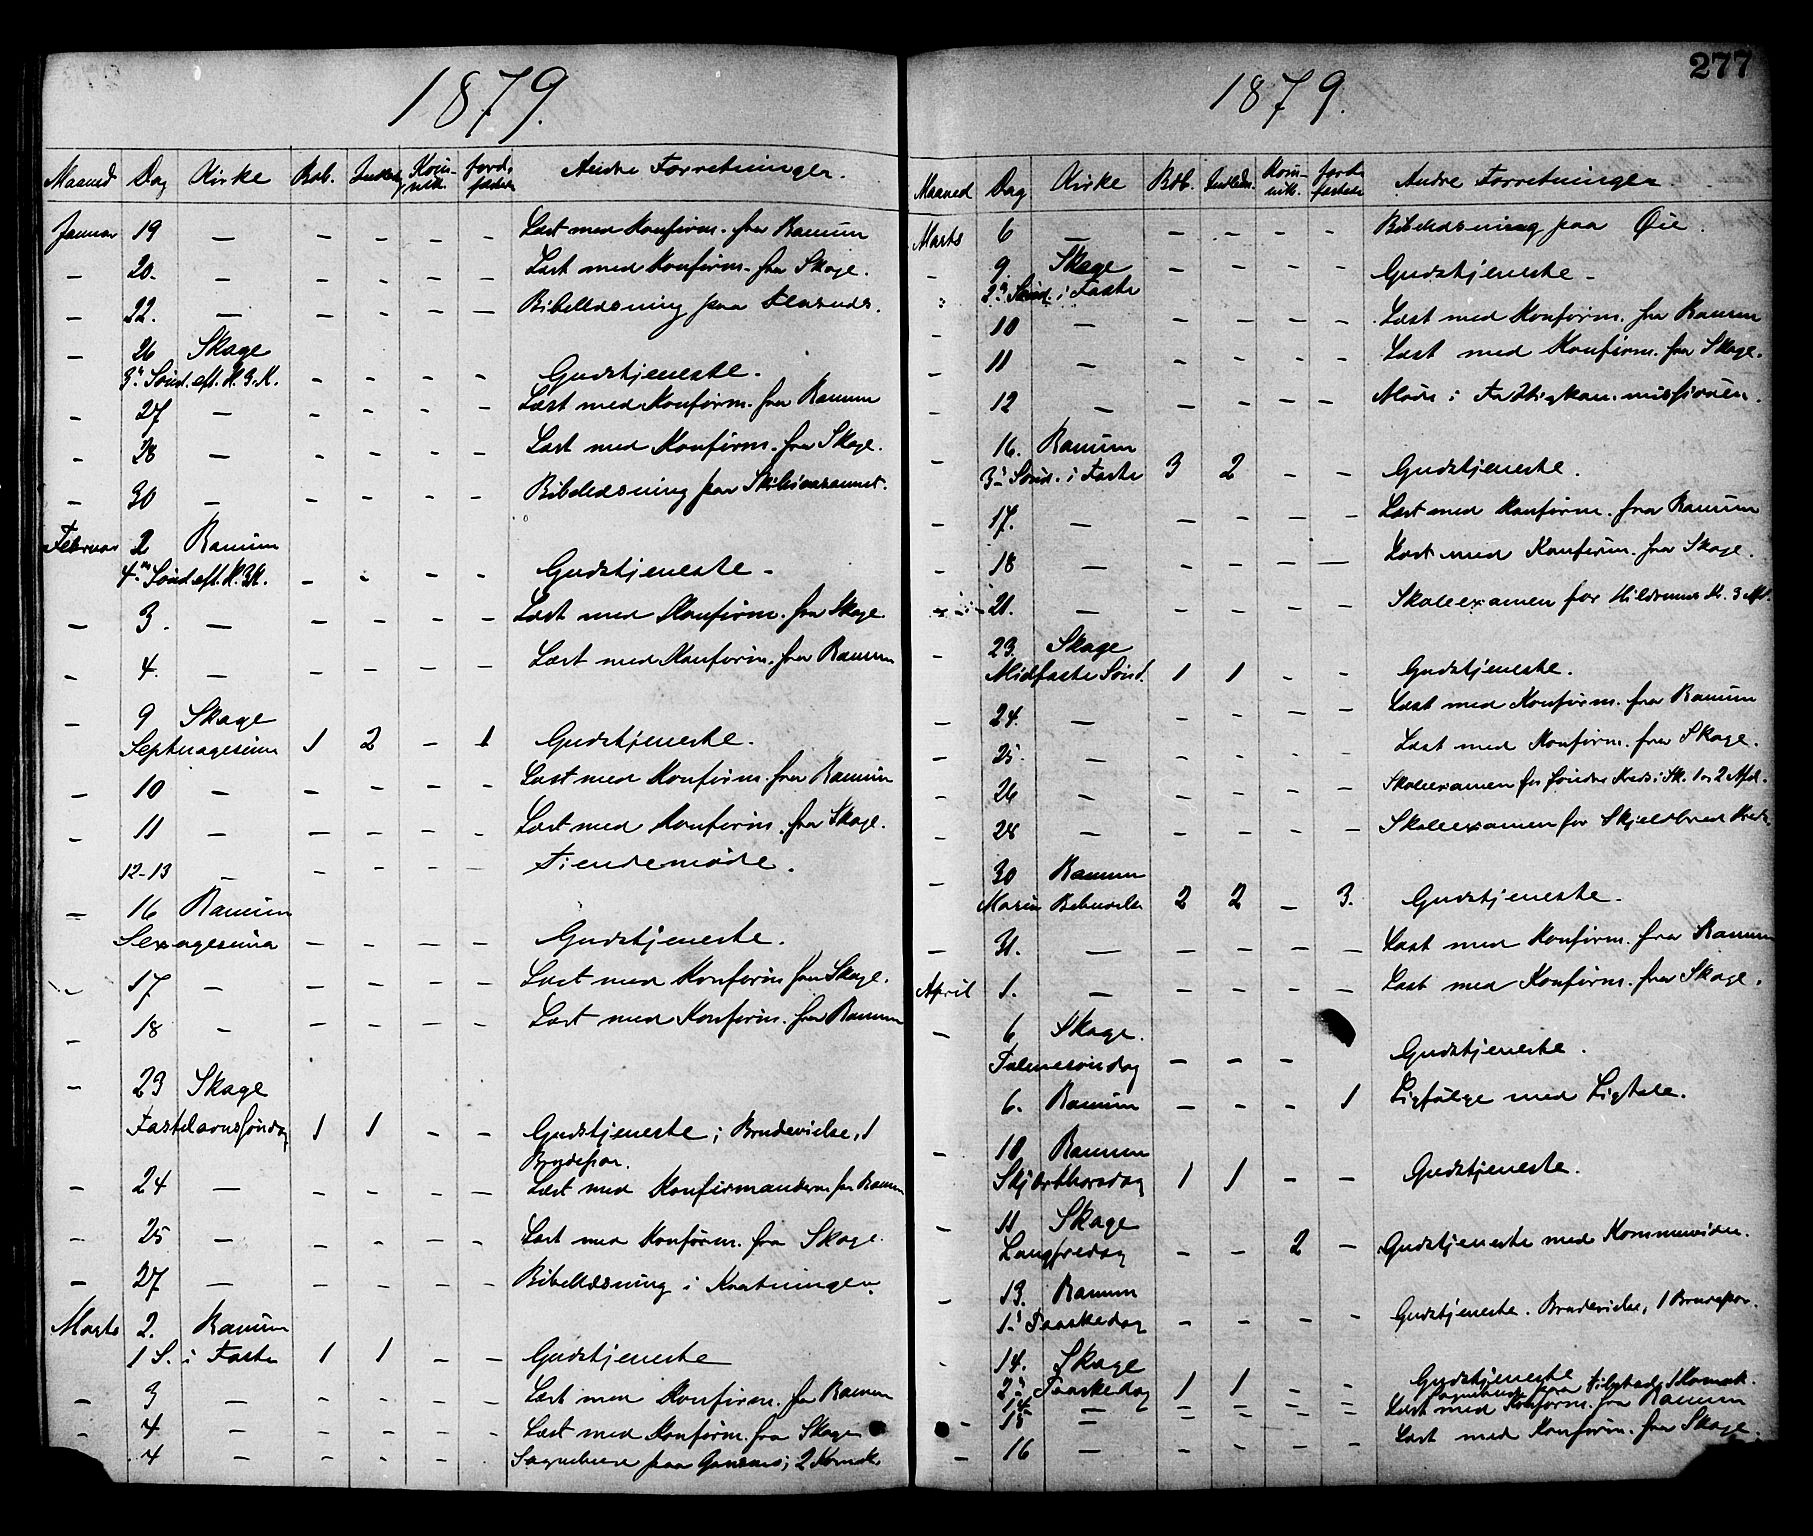 1879.
Maaned Dag Kirke Bab. Indled. Kom-munik. Jord-fæstede Andre Forretninger.
Januar 19 — — — — — Læst med Konfirm. fra Ranum
— 20. — — — — — Læst med Konfirm. fra Skage.
— 22. — — — — — Bibellæsning paa
— 26 Skage
3die Sønd. eft. H. 3. K. — — — — Gudstjeneste.
— 27 — — — — — Læst med Konfirm. fra Ranum
— 28 — — — — — Læst med Konfirm. fra Skage.
— 30 — — — — — Bibellæsning paa
Februar 2 Ranum
4de Sønd. eft. H. 3K. — — — — Gudstjeneste —
— 3. — — — — — Læst med Konfirm. fra Skage
— 4. — — — — — Læst med Konfirm. fra Ranum
— 9 Skage
Septuagesima 1 2 — 1 Gudstjeneste.
— 10 — — — — — Læst med Konfirm. fra Ranum
— 11 — — — — — Læst med Konfirm. fra Skage.
12-13 — — — — — Tiendemøde.
— 16 Ranum
Sexagesima — — — — Gudstjeneste.
— 17 — — — — — Læst med Konfirm fra Skage.
— 18 — — — — — Læst med Konfirm. fra Ranum
— 23 Skage
Fastelavnssøndag 1 1 — — Gudstjeneste; Brudevielse, 1
Brudepar.
— 24 — — — — — Læst med Konfirmanderne fra Ranum
— 25 — — — — — Læst med Konfirm. fra Skage.
— 27 — — — — — Bibellæsning i
Marts 2. Ranum
1 S. i Faste 1 1 — — Gudstjeneste
— 3 — — — — — Læst med Konfirm. fra Ranum
— 4 — — — — — Læst med Konfirm. fra Skage
4 — — — — — Sognebud paa 2 Komck.
277
1879.
Maaned Dag Kirke Bab. Indledn. Kom-unik. Jord-fæstede Andre Forretninger.
Marts 6 — — — — — Bibellæsning paa Øie.
— 9. Skage — — — — Gudstjeneste —
Sønd. i Faste
— 10 — — — — — Læst med Konfirm. fra Ranum
— 11 — — — — — Læst med Konfirm. fra Skage.
— 12 — — — — — Møde i Fattigkommissionen.
— 16. Ranum
3die Sønd. i Faste 3 2 — — Gudstjeneste.
— 17. — — — — — Læst med Konfirm. fra Ranum
— 18 — — — — — Læst med Konfirm. fra Skage.
21. — — — — — Skoleexamen for
— 23. Skage
Midfaste Sønd. 1 1 — — Gudstjeneste.
— 24. — — — — — Læst med Konfirm. fra Ranum
— 25. — — — — — Læst med Konfirm. fra Skage.
— 26 — — — — — Skoleexamen for Søndre Kreds i Sk. 1 og 2 Afd.
— 28 — — — — — Skoleexamen for Skjeldbred Kreds.
— 30 Ranum
Mariæ Bebudelse 2 2 — 3. Gudstjeneste.
— 31. — — — — — Læst med Konfirm. fra Ranum
April 1. — — — — — Læst med Konfirm. fra Skage.
— 6 Skage.
Palmesøndag — — — Gudstjeneste.
6. Ranum — — — 1 Ligfølge med Ligtale.
— 10 Ranum
Skjærthorsdag 1 1 — — Gudstjeneste.
— 11 Skage
Langfredag — — 2 — Gudstjeneste med Kommunion.
— 13. Ranum
1ste Paaskedag — — — — Gudstjeneste. Brudevielse, 1 Brudepar.
— 14. Skage
2den Paaskedag 1 1 — — Gudstjeneste
14 — — — — — Sognebud paa
— 15 — — — — — Læst med Konfirm. fra Ranum
— 16 — Læst med Konfirm. fra Skage.